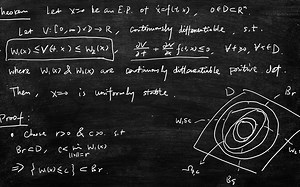 heorem Let x=0 be an E.P. of ẋ=f(t,x), 0∈D⊂Rⁿ.
Let V:[0,∞)×D→R, continuously differentiable, s.t.
W₁(x) ≤ V(t,x) ≤ W₂(x), ∂V/∂t + ∂V/∂x f(t,x) ≤ 0, ∀ t≥0, ∀ x∈D.
where W₁(x) & W₂(x) are continuously differentiable positive def.
Then, x=0 is uniformly stable.
Proof:
• Choose r>0 & c>0 s.t
Br⊂D, c< min W₁(x)
||x||=r
⇒ {W₁(x)≤c} ⊂ Br
D
Br